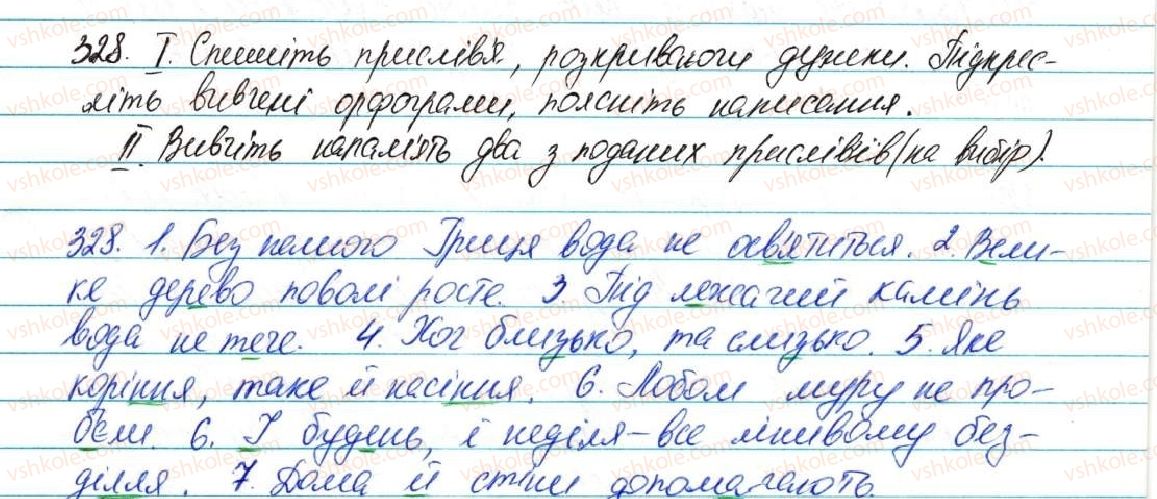 328. I. Спишіть прислів'я, розкриваючи дужки. Підкрес-
літь вивчені орфограми, поясніть написання.
II. Вивчіть напам'ять два з поданих прислів'їв (на вибір).
328. 1. Без нашого Гриця вода не освятиться. 2. Вели-
ке дерево поволі росте. 3. Під лежачий камінь
вода не тече. 4. Хоч близько, та слизько. 5. Яке
коріння, таке й насіння. 6. Лобом муру не про-
б'єш. 6. І будень, і неділя – все лінивому без-
ділля. 7. Дома й стіни допомагають.